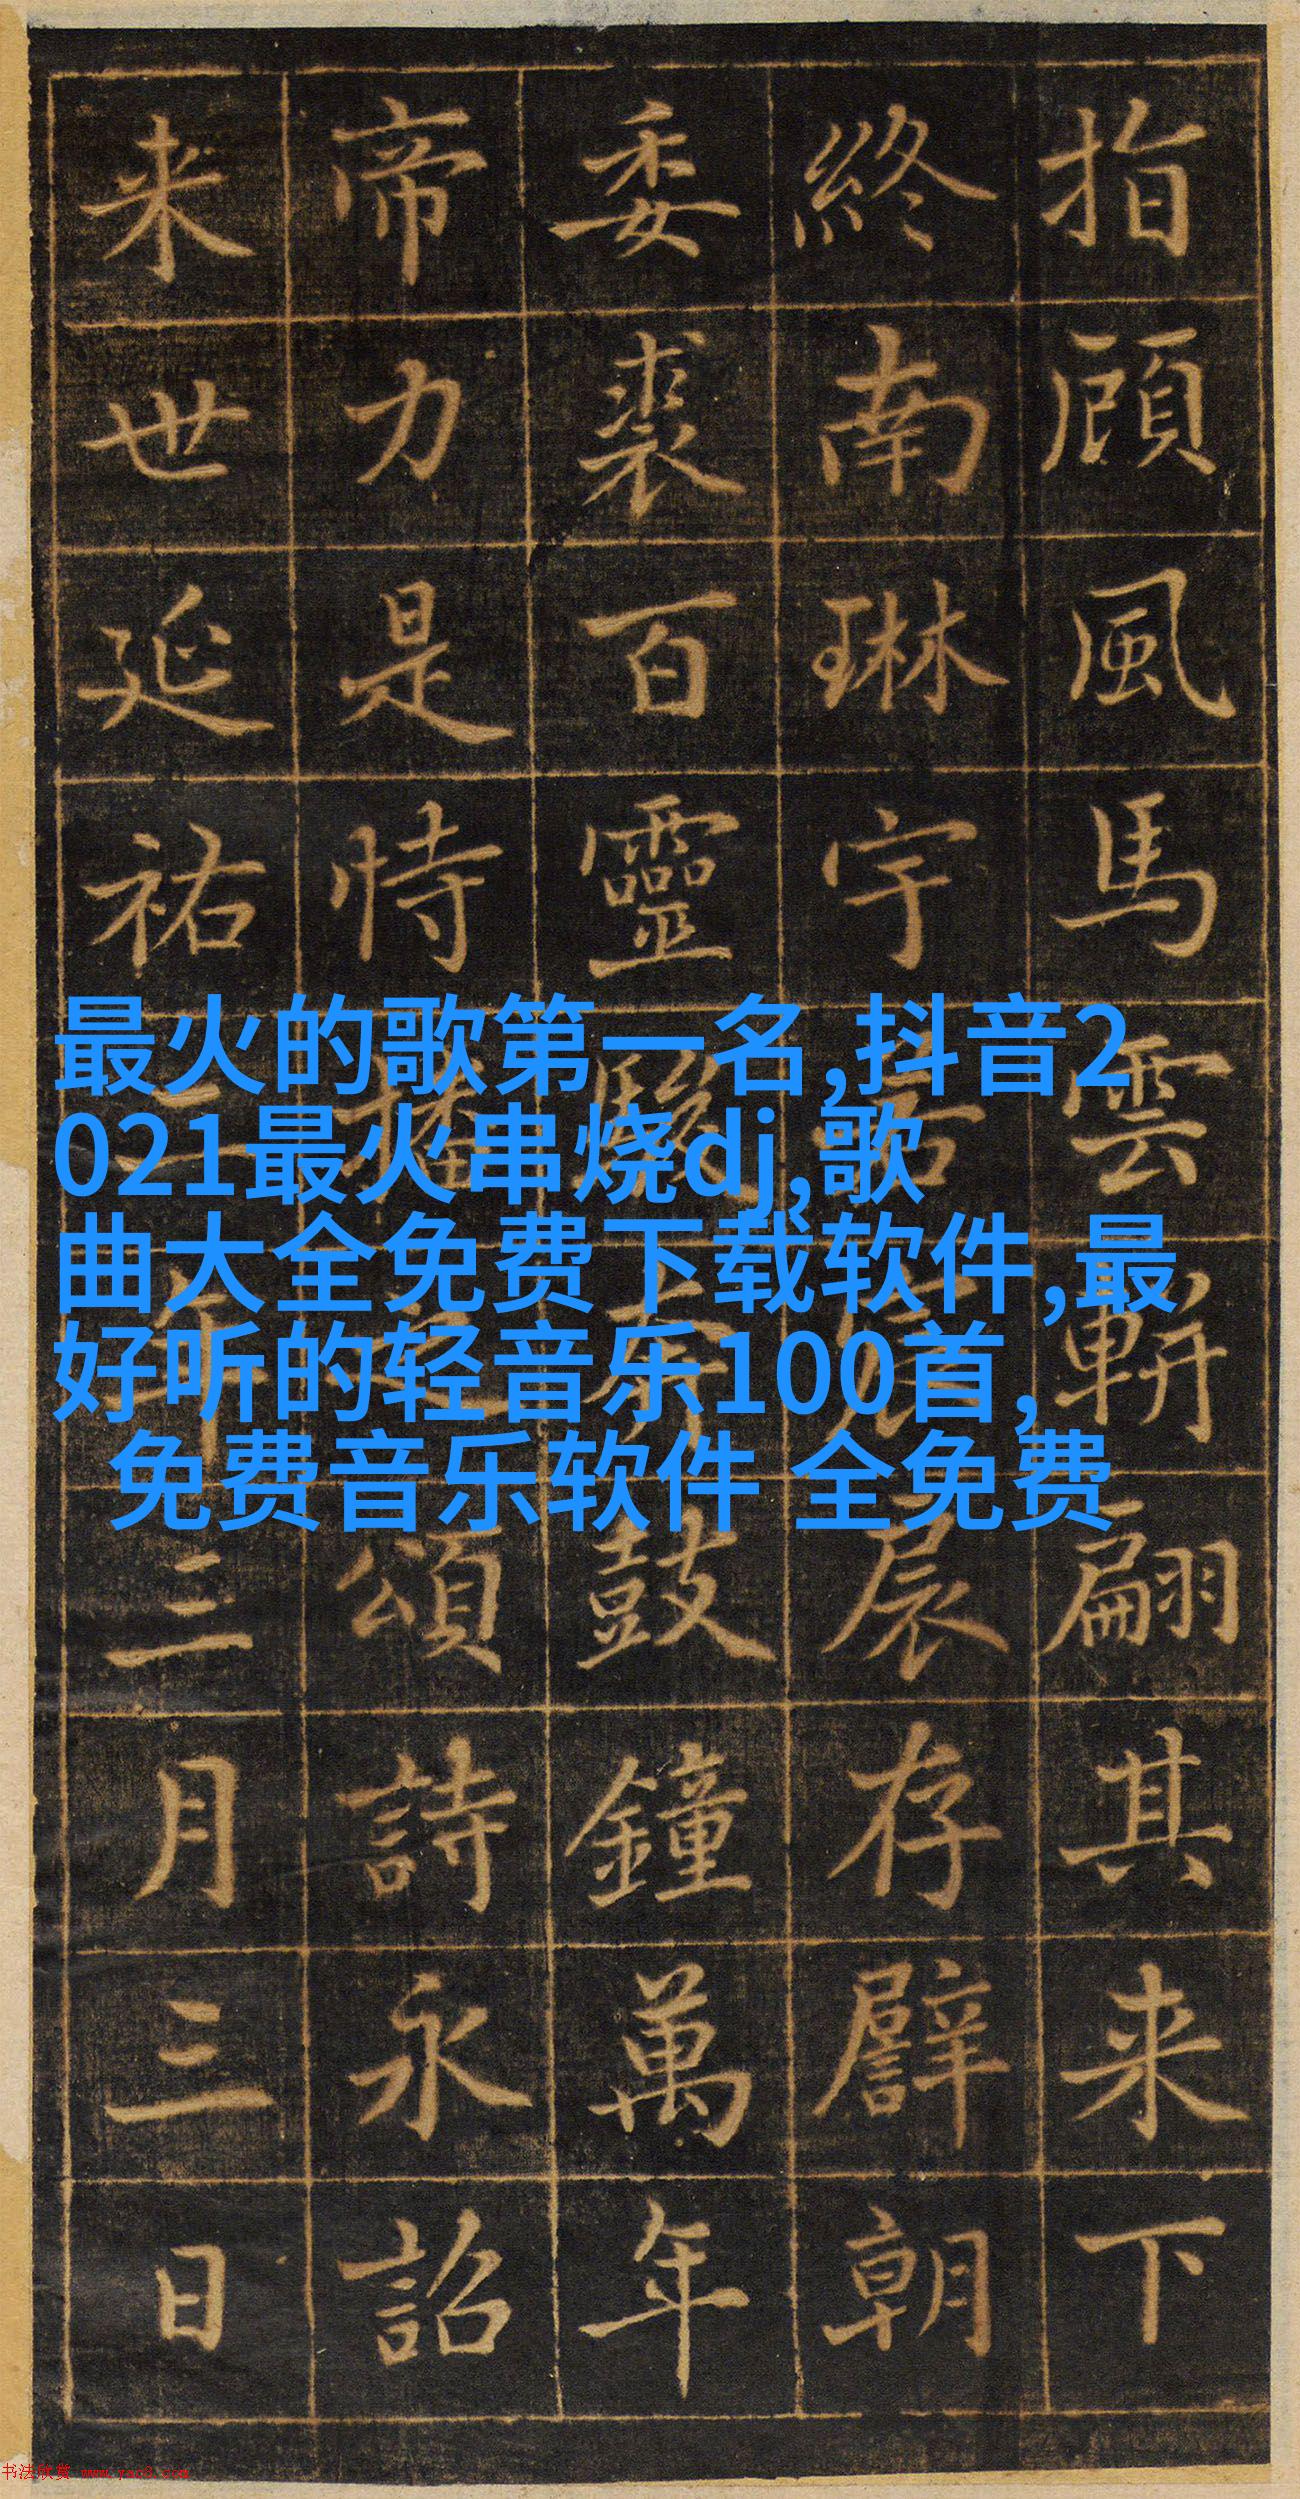 指顧風馬雲軿翩其来下
終南琳宇展存譬朝
委裘百靈駿奔鼓鐘萬年
帝力是恃播之頌詩永詔
来世延祐年三月三日
最火的歌第一名,抖音2
021最火串烧dj,歌
曲大全免费下载软件,最
好听的轻音乐100首,
免费音乐软件 全免费
书法欣赏 www.yac8.com